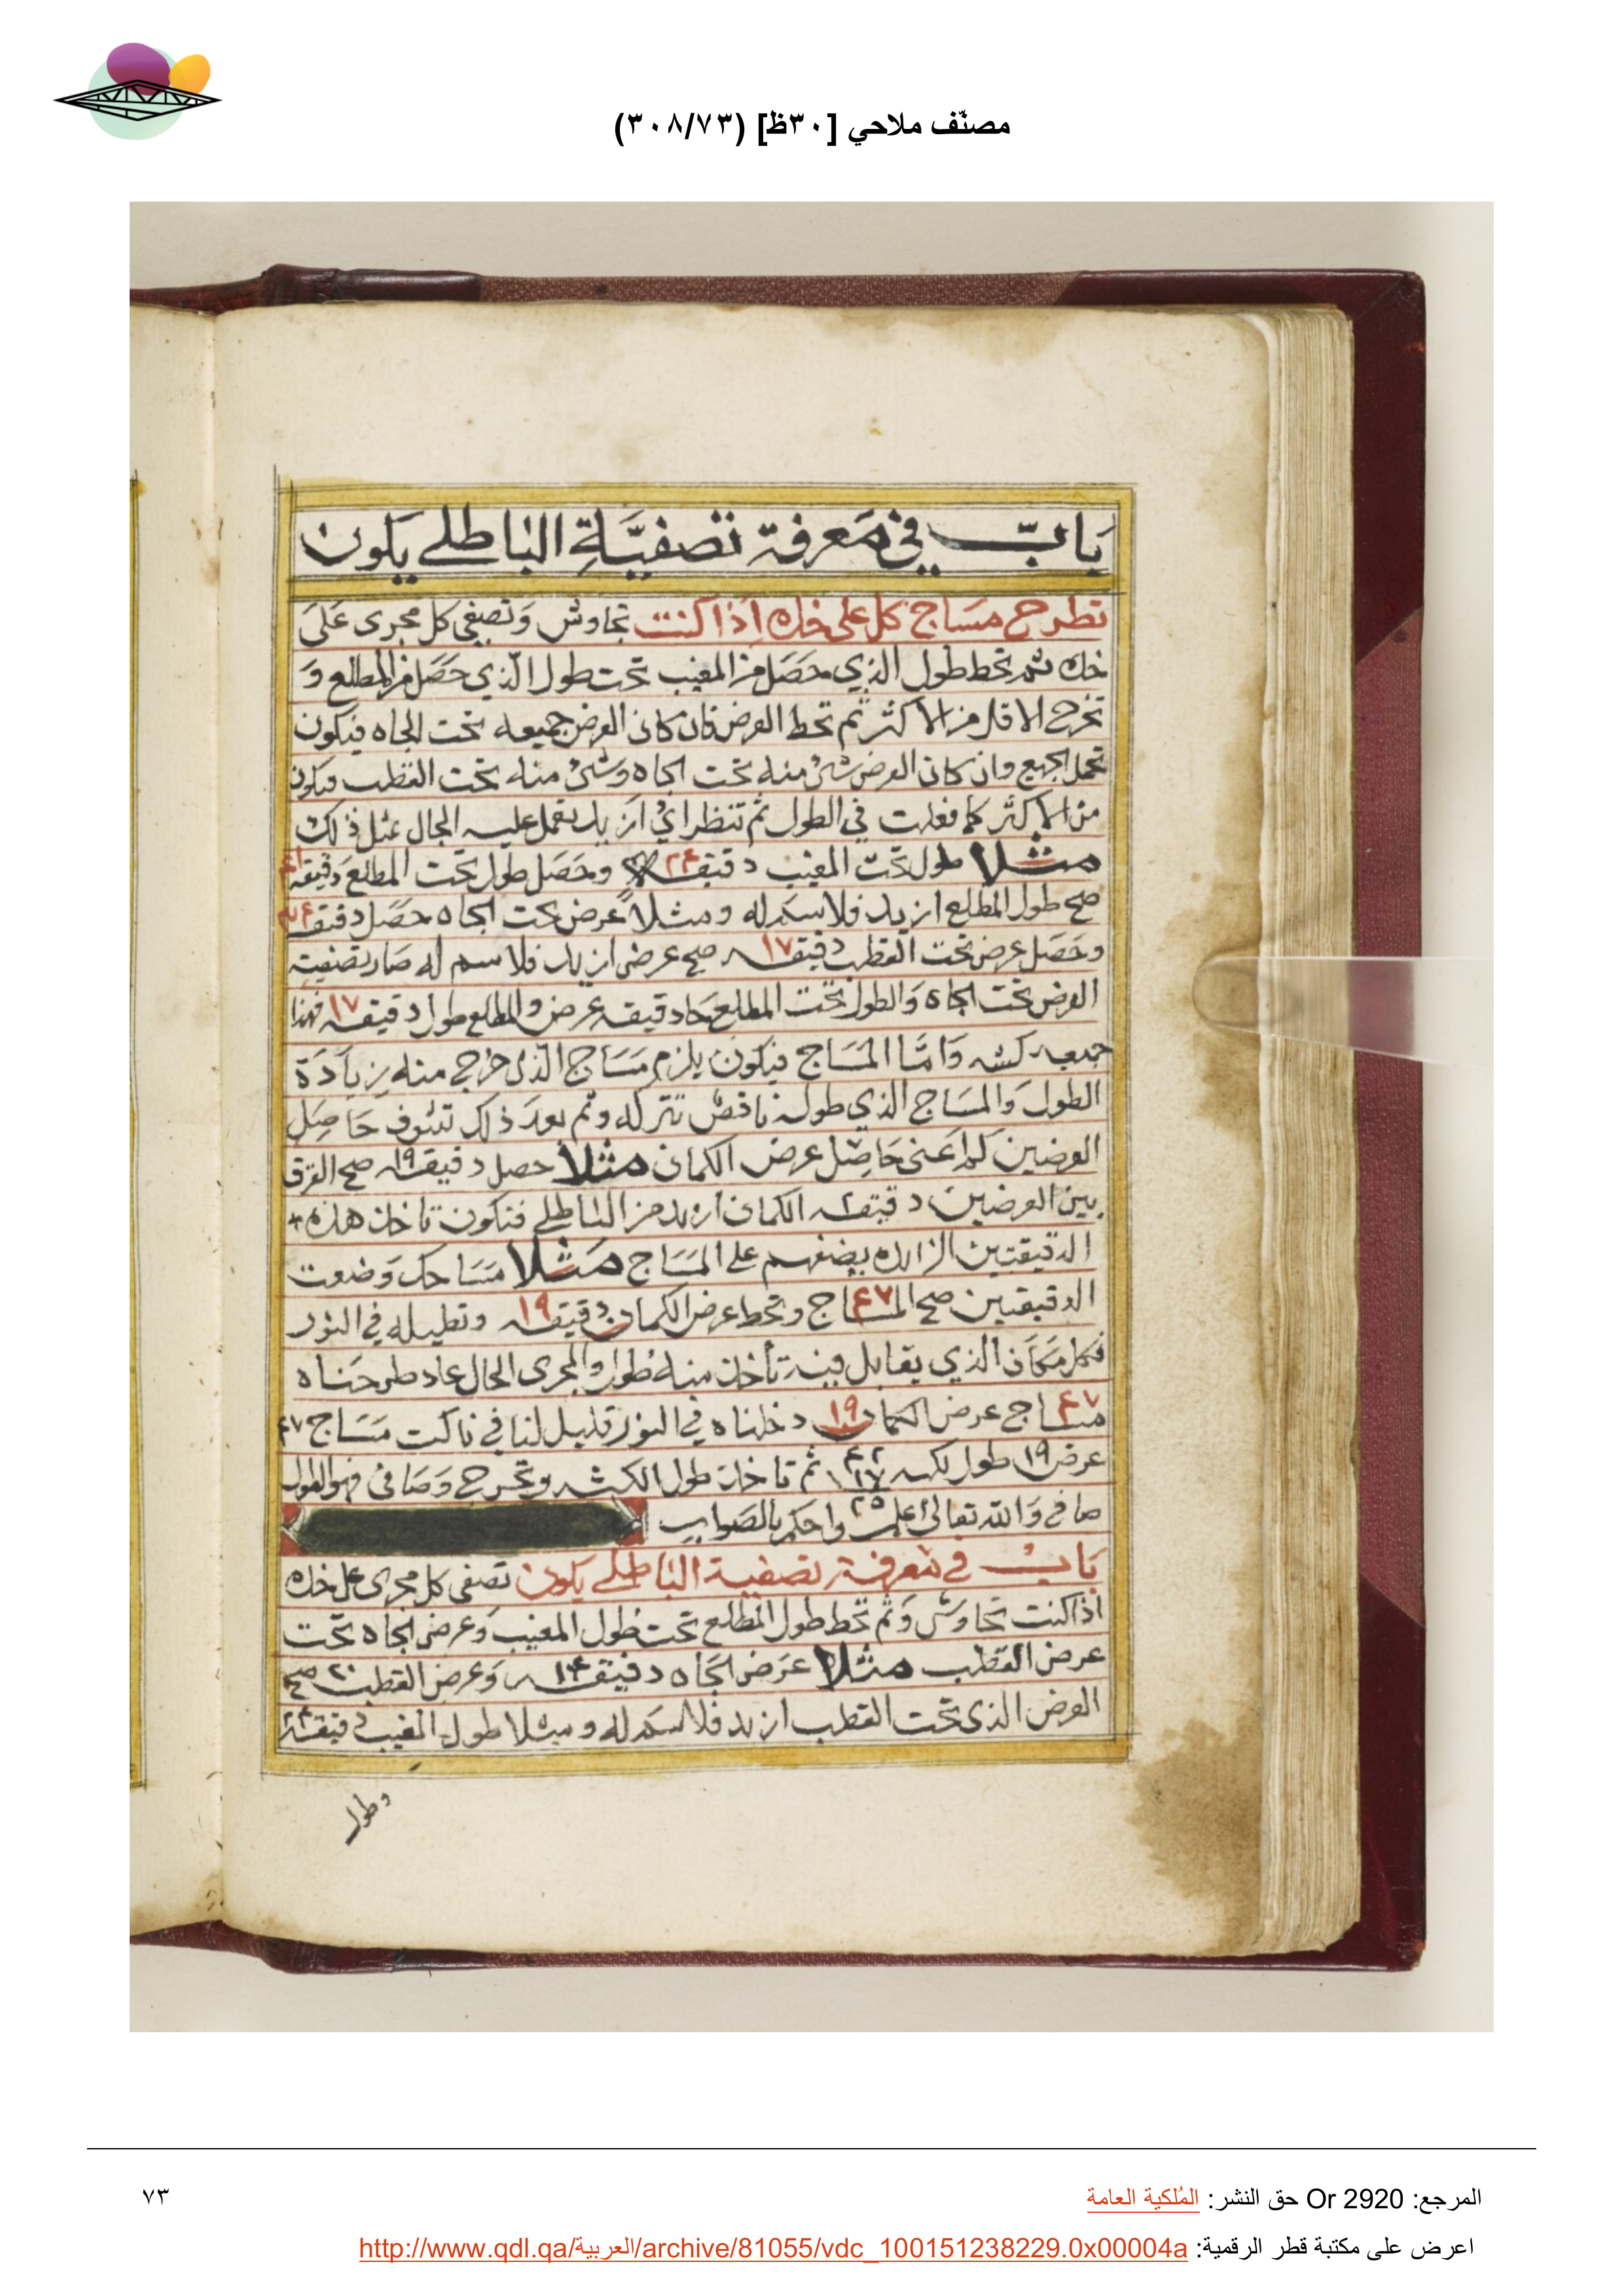 مصنّف ملاحي [٣٠ظ] (٣٠٨/٧٣)
بابٌ في مَعرفة تصفيَّةِ الباطلي يكون
تطرح مسَاج كل على خنه اذا كنت تجاوش وَتصفي كل مجرى عَلىَ
خنه ثم تحط طول الذي حصَل من المغيب تحت طول الّذي حَصَل من المطلع وَ
تخرج الاقل من الاكثر ثم تحط العرض فان كان العرض جميعه تحت الجاه فيكون
تحمل الجميع وان كان العرض شئ منه تحت الجاه وشئ منه تحت القطب فيكون
من الاكثر كما فعلت في الطول ثم تنظر اي ازيد يعمل عليه المجال مثل ذلك
مثلا طول تحت المغيب دقيقه ٢٤ وحَصَل طول تحت المطلع دقيقه ٤١
صح طول المطلع ازيد فلا سكم له ومثلاً عرض تحت الجاه حصَل دقيقه
وحَصَل عرض تحت القطب دقيقه ١٧ صح عرض ازيد فلا سم له صار تصفية
العرض تحت الجاه وَالطول تحت المطلع جاه دقيقه عرض والمطلع طول دقيقه ١٧ فهذا
جميعه كشه وَامّا المسَاج فيكون يلزم مسَاج الذي خرج منه زيادَة
الطول وَالمسَاج الذي طوله ناقص تتركه وثم بعدَ ذلك تشوف حَاصِل
العرضين كم اعني حَاصِل عرض الكمان مثلا حصل دقيقه ١٩ صح الفرق
بين العرضين دقيقه ٢ الكمان ازيد من الباطلي فتكون تاخذ هذه
الدقيقتين الزايده يضفهم على المسَاج مثلا مسَاحك وَضعت
الدقيقتين صح المساج ٤٧ وتحط عرض الكمان دقيقه ١٩ وتطيله في النور
فكل مَكَان الذي يقابل فيه تأخذ منه طول والمجرى الحال عاد طرحَناه
مساج ٤٧ عرض الكمان ١٩ دخلناه في النور قليل لنا في ناكت مسَاج ٤٧
عرض ١٩ طول لكه ٤٢ ١٧ ثم تاخذ طول الكشه وتخرج وَصَافى فهو الطول
٢٥
صافي وَالله تعالى اعلم واحكم بالصَواب
بَابٌ في معرفة تصفية الباطلي يكون تصفى كل مجرى على خنه
اذا كنت تجاوش وَثم تحط طول المطلع تحت طول المغيب وَعرض الجاه تحت
عرض القطب مثلا عَرض الجَاه دقيقه ١٤ وَعرض القطب ٢٠ صح
العرض الذي تحت القطب ازيد فلا سكم له ومثلا طول المغيب دقيقة
وطول
المرجع: Or 2920 حق النشر: المُلكية العامة
٧٣
اعرض على مكتبة قطر الرقمية: http://www.qdl.qa/العربية/archive/81055/vdc_100151238229.0x00004a